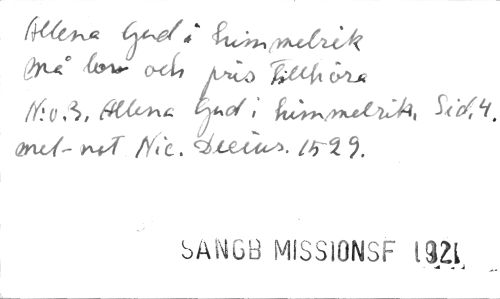 Allena Gud i himmelrik
må lov och pris tillhöra
N:o.3. Allena Gud i himmelrik. Sid. 4.
mel-not Nic. Decius. 1529.
SANGB MISSIONSF 1921